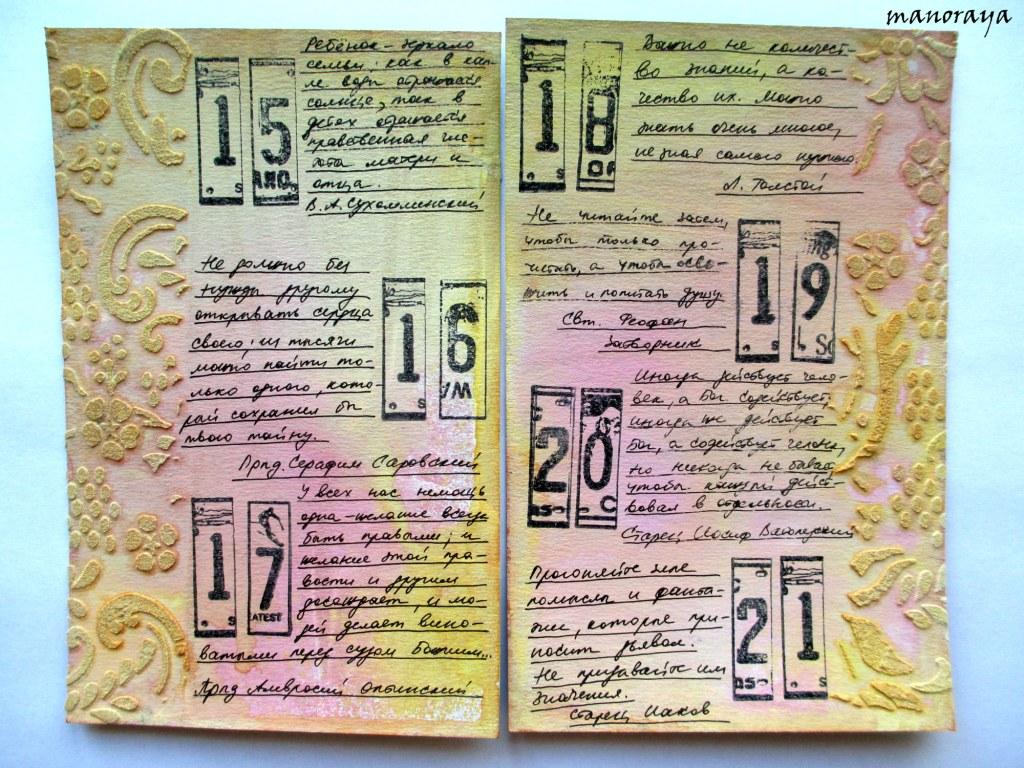 manoraya
15
Ребёнок - зеркало
семьи: как в кап-
ле воды отражается
солнце, так в
детях отражается
нравственная чис-
тота матери и
отца.
В. А. Сухомлинский
Не должно без
нужды другому
открывать сердца
своего: из тысячи
можно найти то-
лько одного, кото-
рый сохранил бы
твою тайну.
Прпд. Серафим Саровский
16
17
LATEST
У всех нас немощь
одна - желание всегда
быть правыми; и
желание этой пра-
вости и другим
досаждает, и лю-
дей делает вино-
ватыми перед судом Божиим..
Прпд Амвросий Оптинский
18
Важно не количест-
во знаний, а ка-
чество их. Можно
знать очень многое,
не зная самого нужного.
Л. Толстой
Не читайте затем,
чтобы только про-
читать, а чтобы
и попитать душу.
Свт. Феофан
Затворник
19
20
Иногда действует чело-
век, а Бог содействует,
иногда же действует
Бог, а содействует человек,
но никогда не бывает,
чтобы каждый дейст-
вовал в отдельности.
Старец Иосиф Ватопедский
Прогоняйте злые
помыслы и фанта-
зии, которые при-
носит дьявол.
Не придавайте им
значения.
Старец Иаков
21